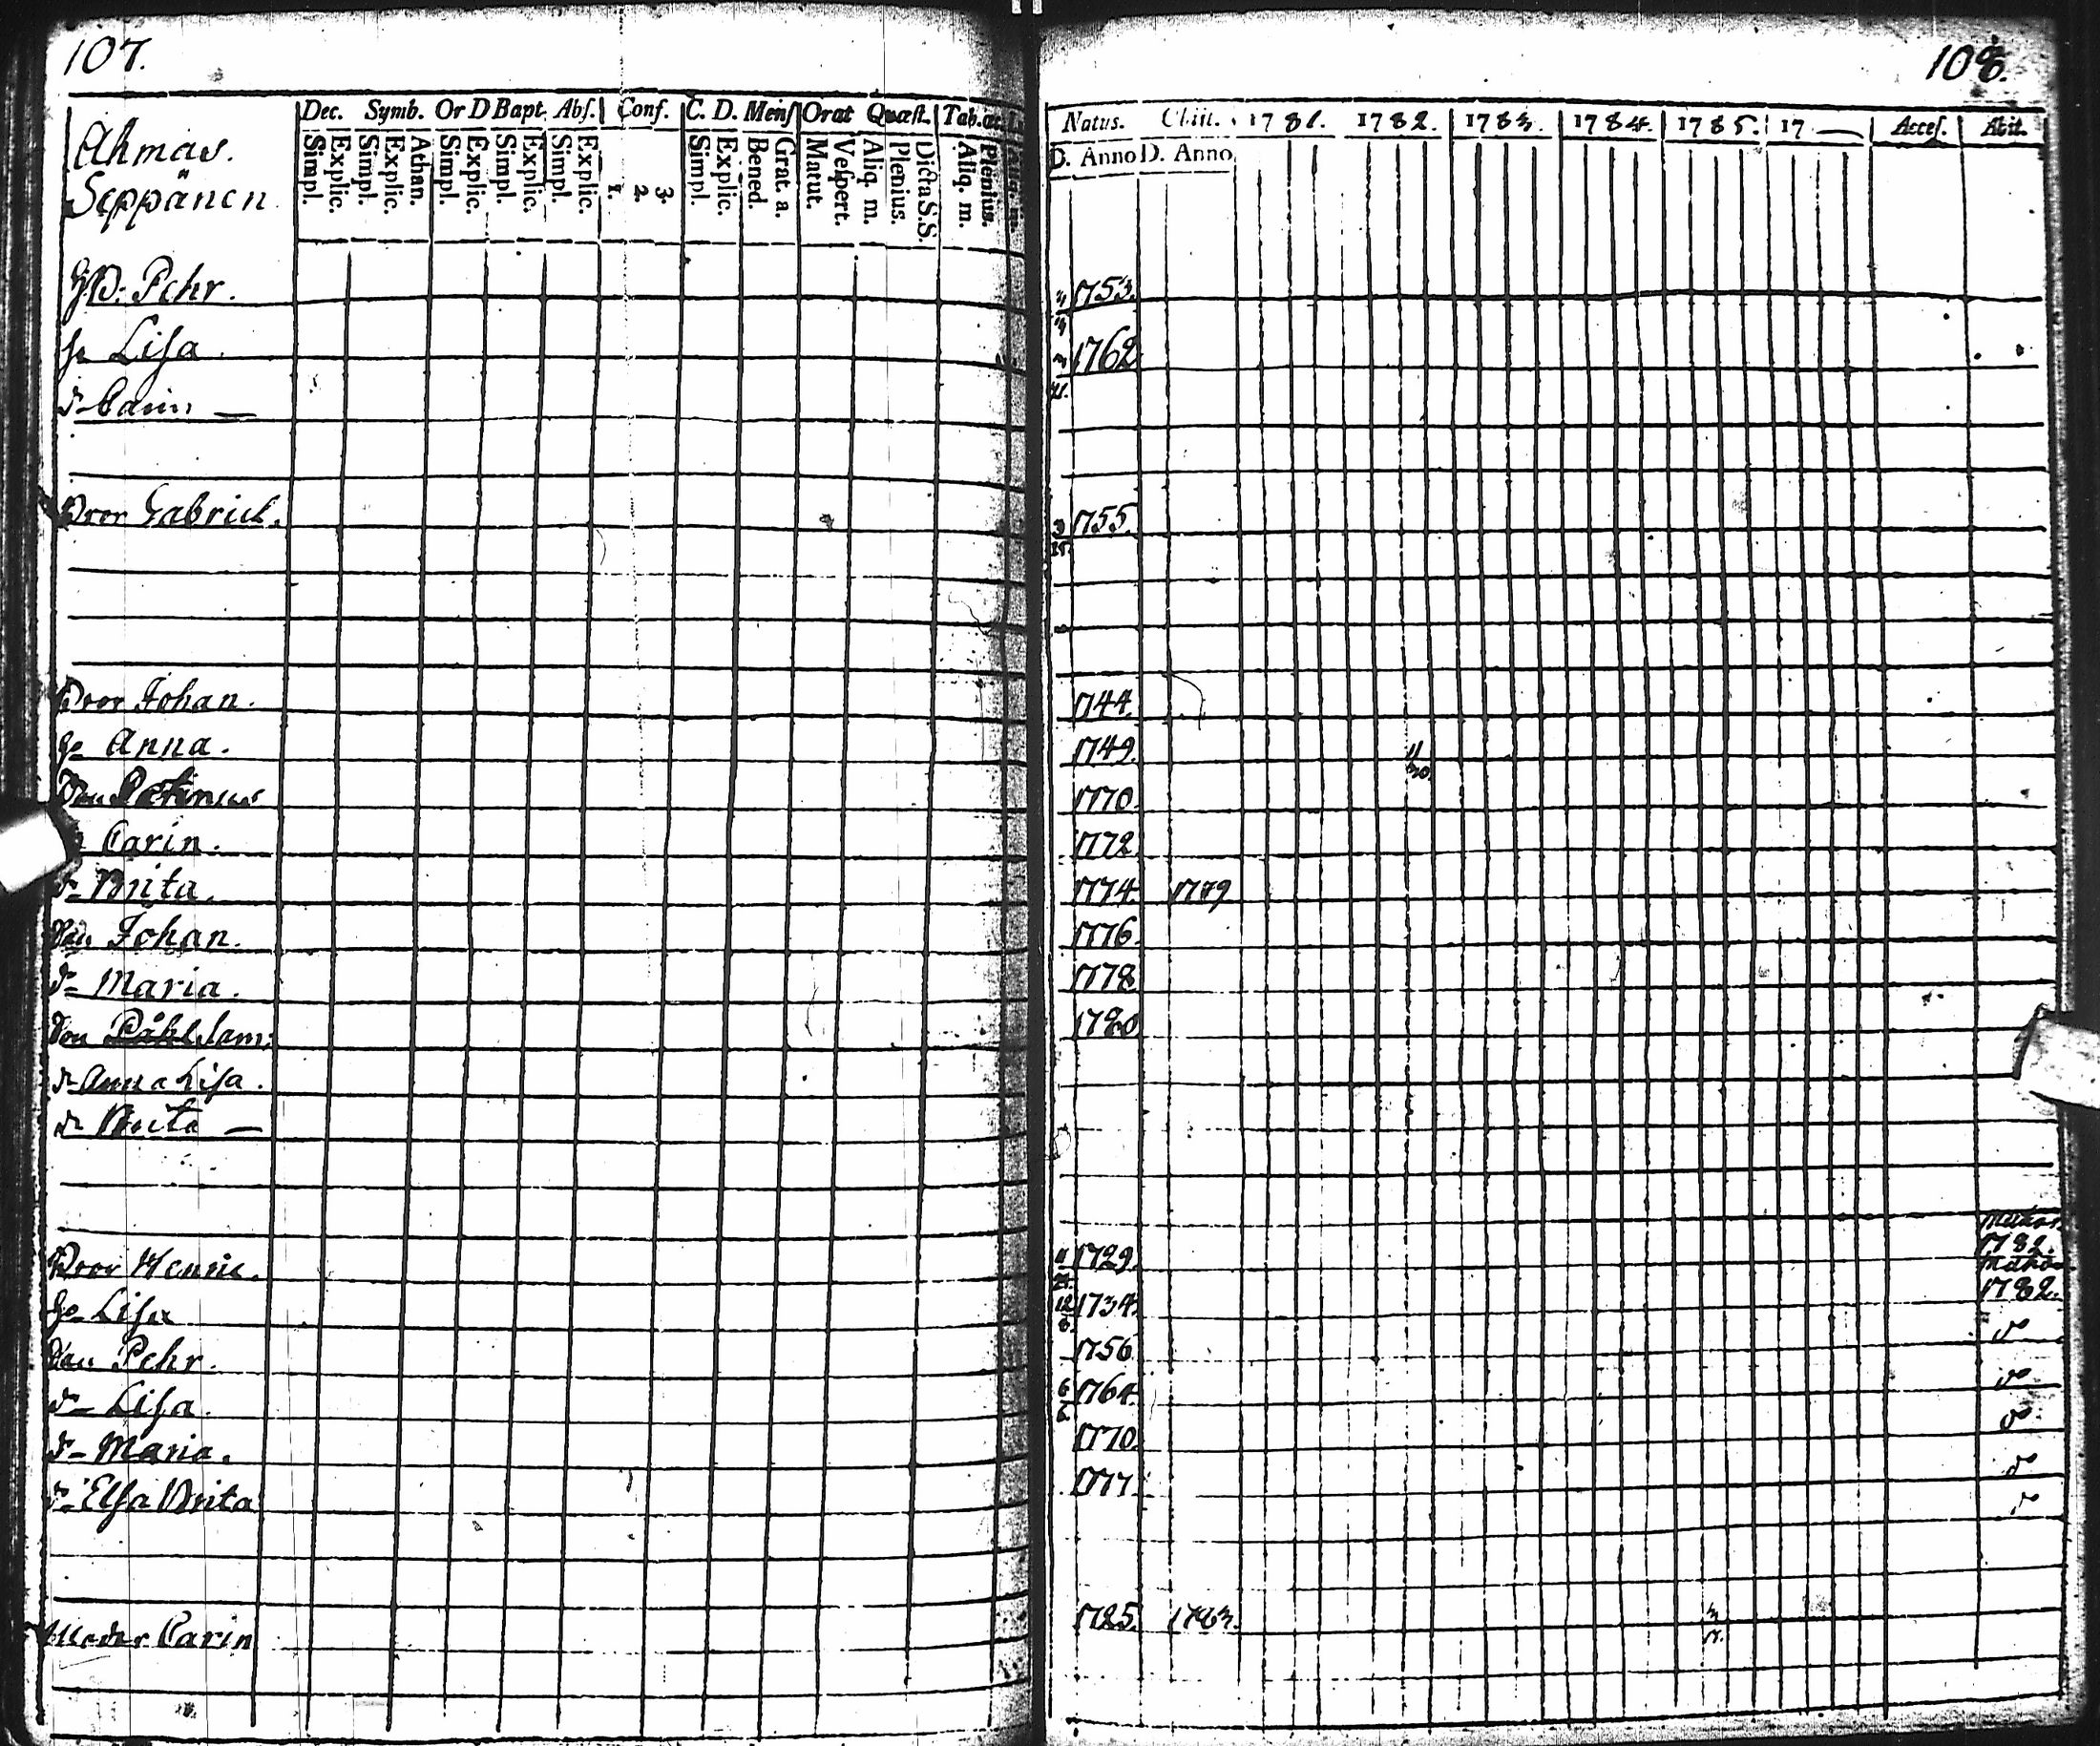 107.
108.
Dec. Symb. Or D Bapt. Abſ. Conf. C. D. Menſ Orat Quæſt. Tab. œc.
Simpl. Explic. Simpl. Explic. Athan. Simpl. Explic. Simpl. Explic. Simpl. Explic. 1. 2. 3. Simpl. Explic. Bened. Grat. a. Matut. Veſpert. Aliq. m. Plenius. Dicta S.S. Aliq. m. Plenius.
Natus. Obiit. 1781. 1782. 1783. 1784. 1785. 17 Acceſ. Abit.
D. Anno D. Anno
Ahmas.
Seppänen
Pehr. 1753.
Liſa 1762
Carin
Bror Gabriel. 1755.
Bror Johan. 1744.
Anna. 1749. 11 30.
1770.
Carin. 1772
Brita. 1774. 1779
Johan. 1776.
Maria. 1778
Son Påhl Sam: 1780
Anna Liſa.
Brita
Bror Henric. 11 1729. 1782.
Liſa 12 8. 1734. 1782.
Pehr. 1756
Liſa 6 1764.
Maria. 1770.
Elſa Brita 1777.
Moder Carin 1725. 1783.